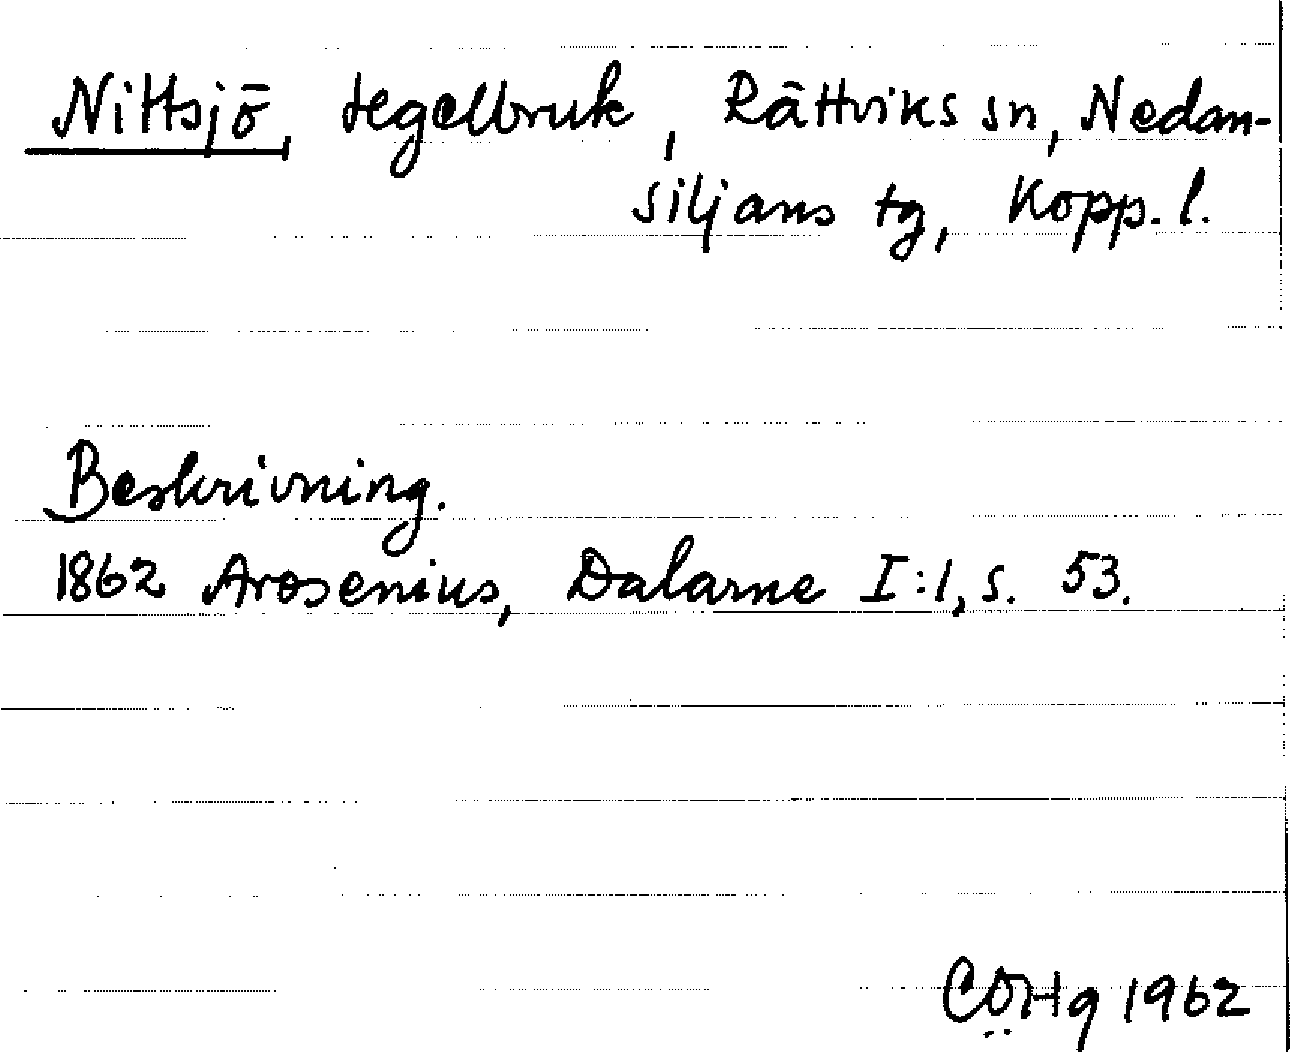 Nittsjö, tegelbruk, Rättviks sn, Nedan-
siljans tg, Kopp. l.
Beskrivning.
1862 Arosenius, Dalarne I:1, s. 53.
CÖHg 1962